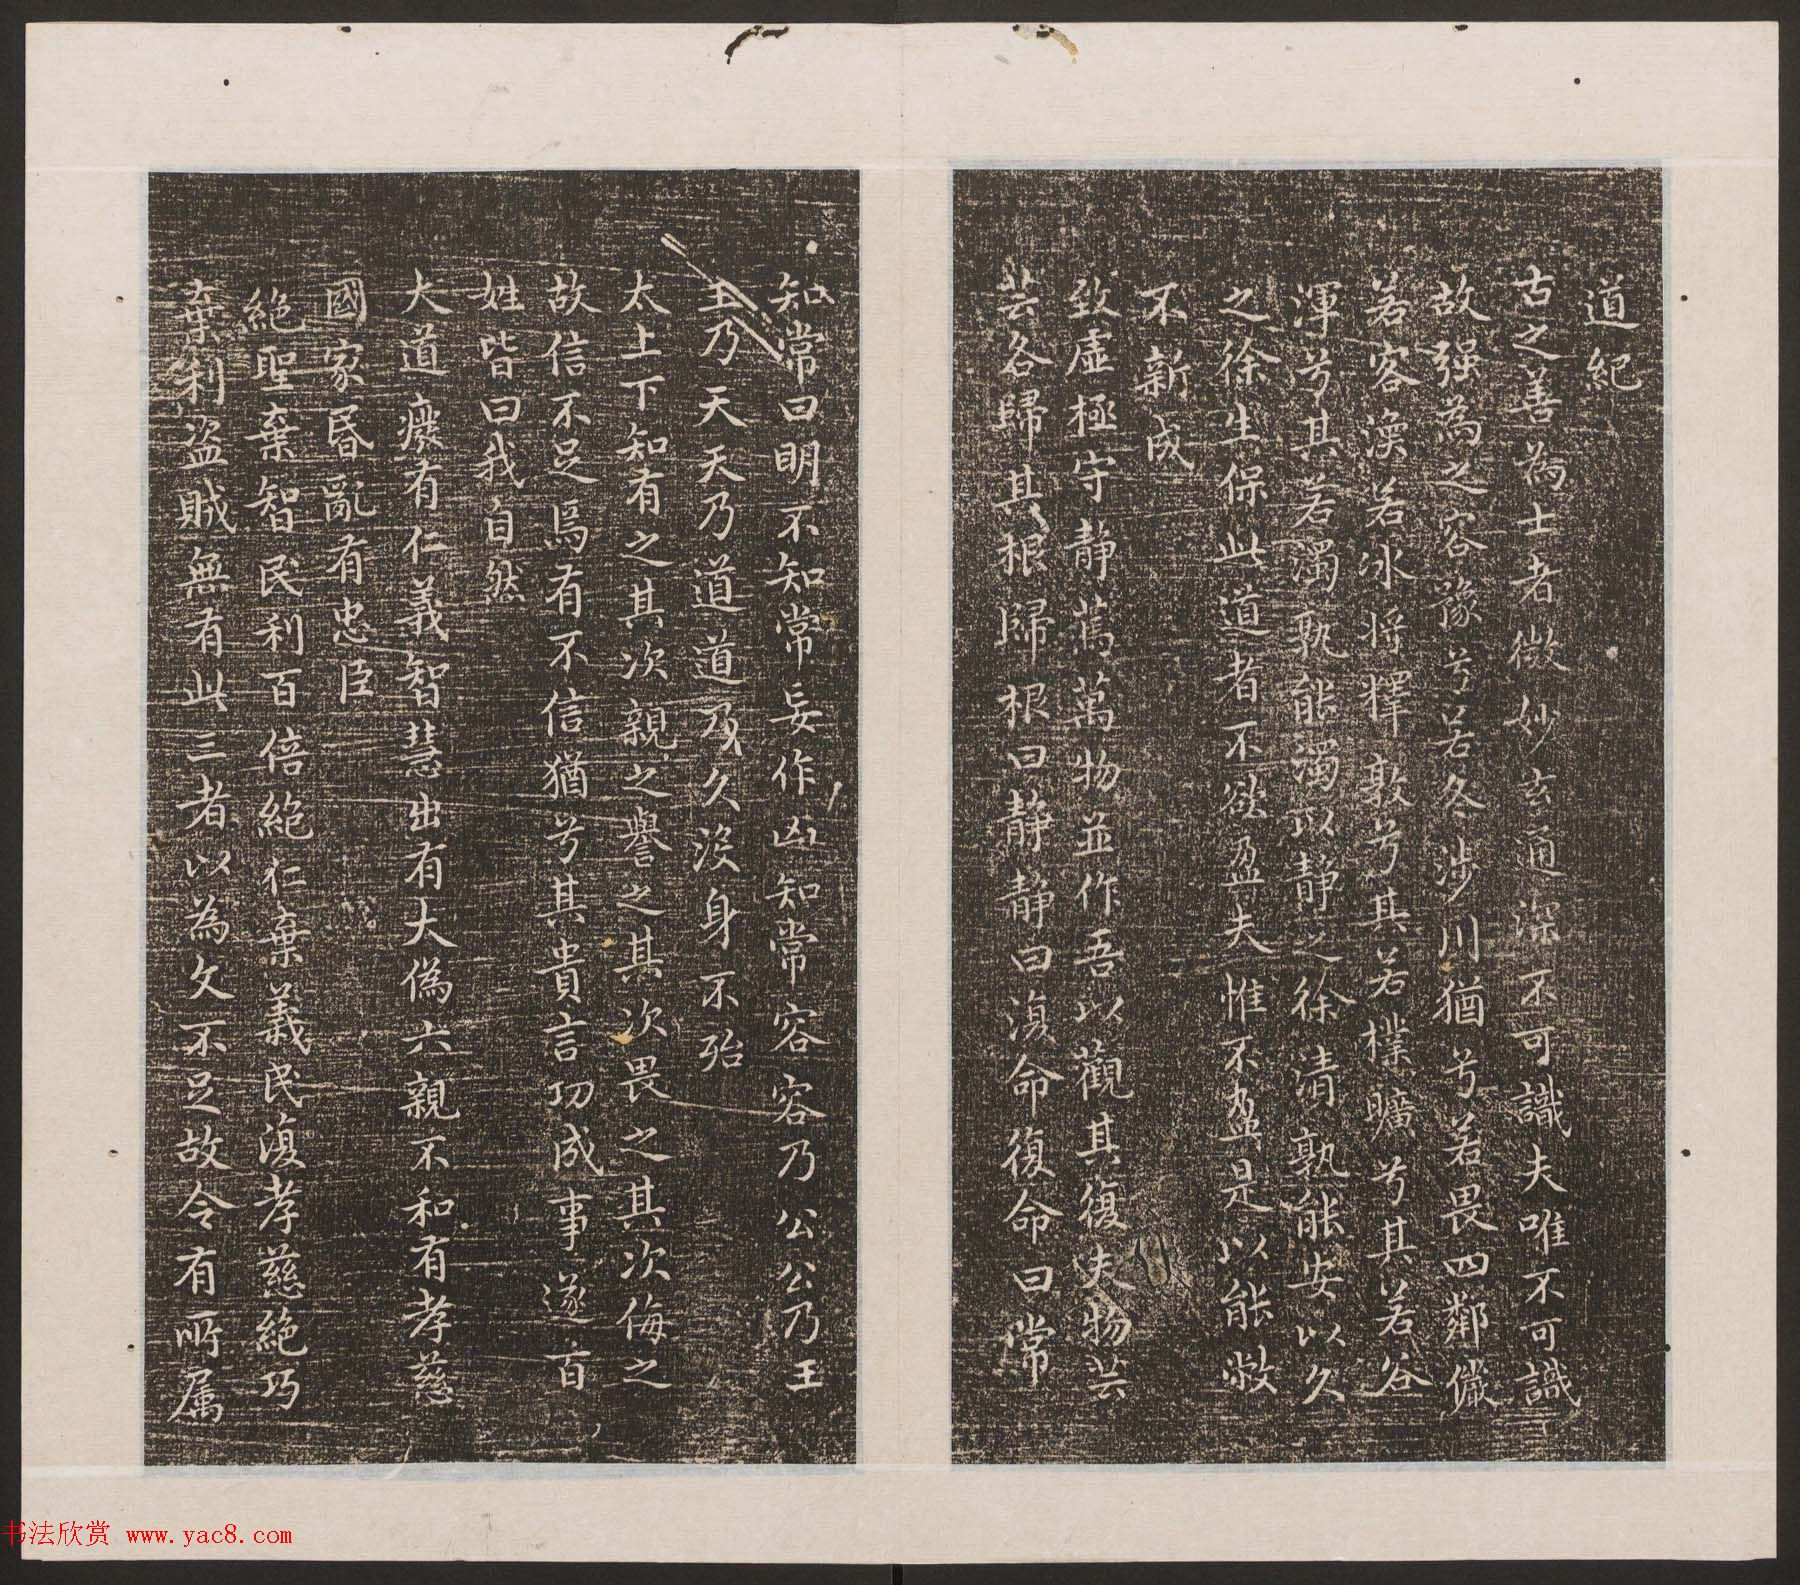 道紀
古之善為士者微妙玄通深不可識夫唯不可識
故强為之容豫兮若冬涉川猶兮若畏四鄰儼
若客渙若冰将釋敦兮其若樸曠兮其若谷
渾兮其若濁孰能濁以静之徐清孰能安以久
之徐生保此道者不欲盈夫惟不盈是以能敝
不新成
致虛極守静篤萬物並作吾以觀其復夫物芸
芸各歸其根歸根曰静静曰復命復命曰常
知常曰明不知常妄作凶知常容容乃公公乃王
王乃天天乃道道乃久没身不殆
太上下知有之其次親之譽之其次畏之其次侮之
故信不足焉有不信猶兮其貴言功成事遂百
姓皆曰我自然
大道癈有仁義智慧出有大偽六親不和有孝慈
國家昏亂有忠臣
絶聖棄智民利百倍絶仁棄義民復孝慈絶巧
棄利盗賊無有此三者以為文不足故令有所属
书法欣赏 www.yac8.com